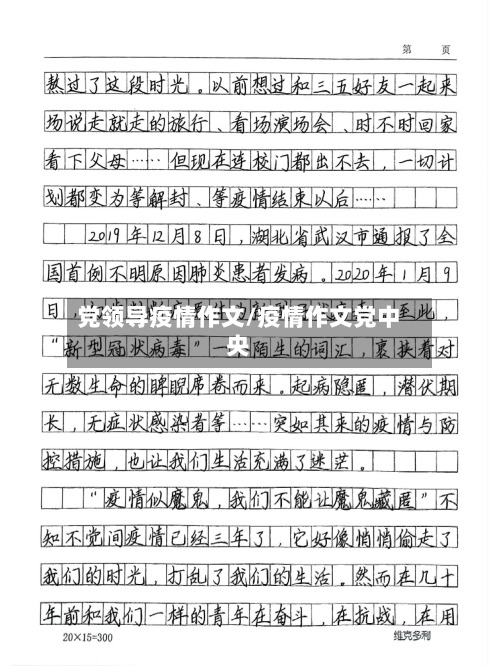 第 页
熬过了这段时光。以前想过和三五好友一起来
场说走就走的旅行、看场演场会、时不时回家
看下父母……但现在连校门都出不去,一切计
划都变为等解封、等疫情结束以后……
2019年12月8日,湖北省武汉市通报了全
国首例不明原因肺炎患者发病。2020年1月9
日, 至此,
党领导疫情作文/疫情作文党中
央
“新型冠状病毒”一 陌生的词汇,裹挟着对
无数生命的睥睨席卷而来。起病隐匿,潜伏期
长,无症状感染者等……突如其来的疫情与防
控措施,也让我们生活充满了迷茫。
“疫情似魔鬼,我们不能让魔鬼藏匿”不
知不觉间疫情已经三年了,它好像悄悄偷走了
我们的时光,打乱了我们的生活。然而在几十
年前和我们一样的青年在奋斗,在抗战,在用
20×15=300
维克多利